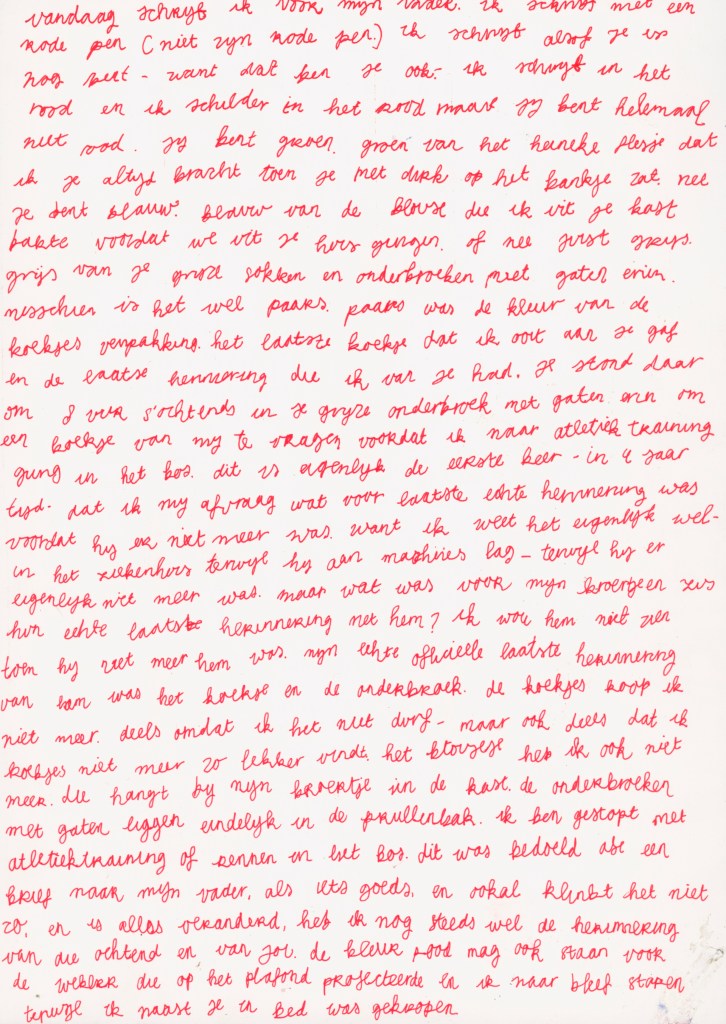 vandaag schrijf ik voor mijn vader. ik schrijf met een
rode pen (niet zijn rode pen.) ik schrijf alsof je er
nog bent - want dat ben je ook. ik schrijf in het
rood en ik schilder in het rood maar jij bent helemaal
niet rood. jij bent groen. groen van het heineke flesje dat
ik je altijd bracht toen je met dirk op het bankje zat. nee
je bent blauw. blauw van de blouse die ik uit je kast
pakte voordat we uit je huis gingen. of nee juist grijs.
grijs van je grijze sokken en onderbroeken met gaten erin.
misschien is het wel paars. paars was de kleur van de
koekjes verpakking. het laatste koekje dat ik ooit aan je gaf
en de laatse herinnering die ik van je had. je stond daar
om 8 uur s'ochtends in je grijze onderbroek met gaten erin om
een koekje van mij te vragen voordat ik naar atletiek training
ging in het bos. dit is eigenlijk de eerste keer - in 4 jaar
tijd. dat ik mij afvraag wat voor laatste echte herinnering was
voordat hij er niet meer was. want ik weet het eigenlijk wel-
in het ziekenhuis terwijl hij aan machines lag - terwijl hij er
eigenlijk niet meer was. maar wat was voor mijn broertje en zus
hun echte laatste herinnering met hem? ik wou hem niet zien
toen hij niet meer hem was. mijn echte officiële laatste herinnering
van hem was het koekje en de onderbroek. de koekjes koop ik
niet meer. deels omdat ik het niet durf - maar ook deels dat ik
koekjes niet meer zo lekker vindt. het blousje heb ik ook niet
meer. die hangt bij mijn broertje in de kast. de onderbroeken
met gaten liggen eindelijk in de prullenbak. ik ben gestopt met
atletiektraining of rennen in het bos. dit was bedoeld als een
brief naar mijn vader, als iets goeds, en ookal klinkt het niet
zo, en is alles veranderd, heb ik nog steeds wel de herinnering
van die ochtend en van jou. de kleur rood mag ook staan voor
de wekker die op het plafond projecteerde en ik naar bleef staren
terwijl ik naast je in bed was gekropen